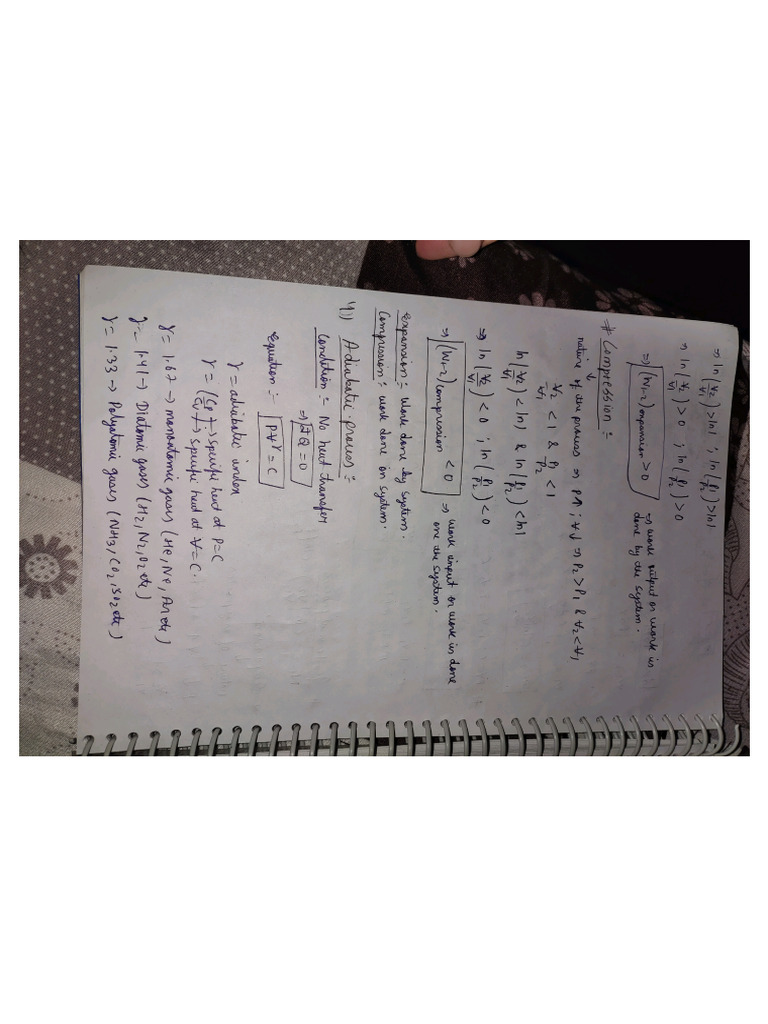 ⇒ ln(V2/V1) > ln1 ; ln(P1/P2) > ln1
⇒ ln(V2/V1) > 0 ; ln(P1/P2) > 0
⇒ (W1-2)expansion > 0 ⇒ work output or work is
done by the system.
# Compression :-
nature of the process ⇒ P↑ ; V↓ ⇒ P2 > P1 & V2 < V1
V2/V1 < 1 & P1/P2 < 1
ln(V2/V1) < ln1 & ln(P1/P2) < ln1
⇒ ln(V2/V1) < 0 ; ln(P1/P2) < 0
⇒ (W1-2)compression < 0 ⇒ work input or work is done
one the system.
Expansion :- work done by system.
Compression :- work done on system.
4) Adiabatic process :-
Condition :- No heat transfer
⇒ đQ = 0
Equation :- PV^γ = C
γ = adiabatic index
γ = (Cp/Cv) → specific heat at P=C
→ specific heat at V=C.
γ = 1.67 → monoatomic gases (He, Ne, Ar etc)
γ = 1.41 → Diatomic gases (H2, N2, O2 etc)
γ = 1.33 → Polyatomic gases (NH3, CO2, SO2 etc)